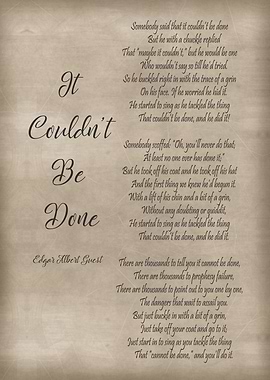 It
Couldn't
Be
Done
Edgar Albert Guest
Somebody said that it couldn't be done
But he with a chuckle replied
That "maybe it couldn't," but he would be one
Who wouldn't say so till he'd tried.
So he buckled right in with the trace of a grin
On his face. If he worried he hid it.
He started to sing as he tackled the thing
That couldn't be done, and he did it!
Somebody scoffed: "Oh, you'll never do that;
At least no one ever has done it;"
But he took off his coat and he took off his hat
And the first thing we knew he'd begun it.
With a lift of his chin and a bit of a grin,
Without any doubting or quiddit,
He started to sing as he tackled the thing
That couldn't be done, and he did it.
There are thousands to tell you it cannot be done,
There are thousands to prophesy failure,
There are thousands to point out to you one by one,
The dangers that wait to assail you.
But just buckle in with a bit of a grin,
Just take off your coat and go to it;
Just start in to sing as you tackle the thing
That "cannot be done," and you'll do it.